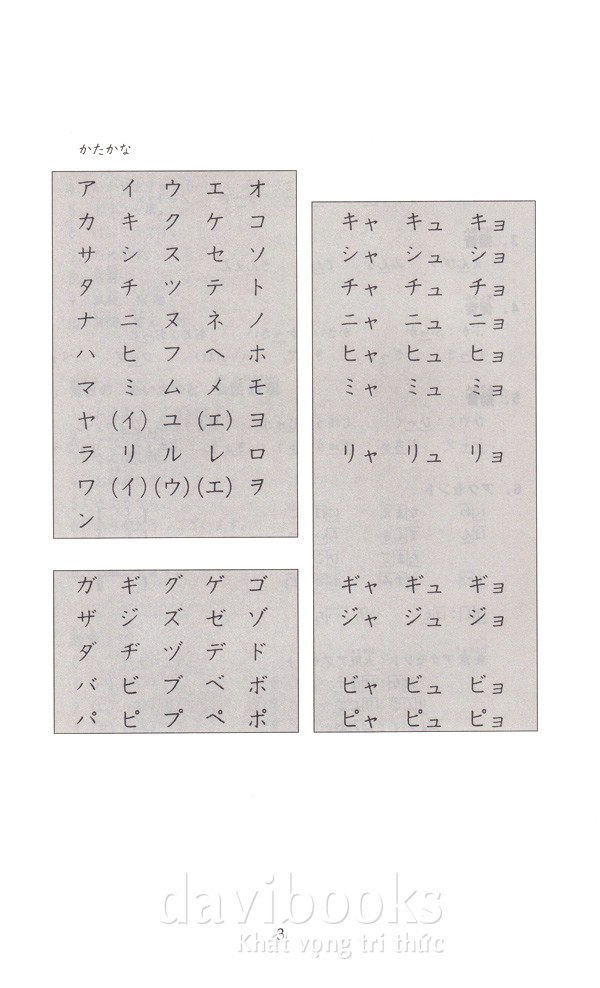 かたかな
ア イ ウ エ オ
カ キ ク ケ コ
サ シ ス セ ソ
タ チ ツ テ ト
ナ ニ ヌ ネ ノ
ハ ヒ フ ヘ ホ
マ ミ ム メ モ
ヤ (イ) ユ (エ) ヨ
ラ リ ル レ ロ
ワ (イ) (ウ) (エ) ヲ
ン
ガ ギ グ ゲ ゴ
ザ ジ ズ ゼ ゾ
ダ ヂ ヅ デ ド
バ ビ ブ ベ ボ
パ ピ プ ペ ポ
キャ キュ キョ
シャ シュ ショ
チャ チュ チョ
ニャ ニュ ニョ
ヒャ ヒュ ヒョ
ミャ ミュ ミョ
リャ リュ リョ
ギャ ギュ ギョ
ジャ ジュ ジョ
ビャ ビュ ビョ
ピャ ピュ ピョ
davibooks
3
Khát vọng tri thức